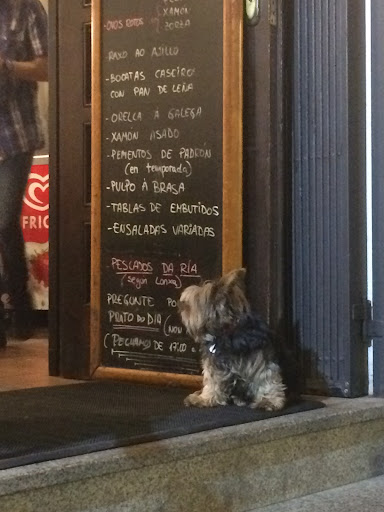 XAMÓN
-OVOS ROTOS
ZORZA
RAXO AO AJILLO
-BOCATAS CASEIRO
CON PAN DE LEÑA
-ORELLA Á GALEGA
-XAMÓN ASADO
-PEMENTOS DE PADRÓN
(en temporada)
-PULPO Á BRASA
-TABLAS DE EMBUTIDOS
-ENSALADAS VARIADAS
-PESCADOS DA RÍA
(según Lonxa)
PREGUNTE PO
PRATO DO DÍA (NON
DE 17:00
FRIG